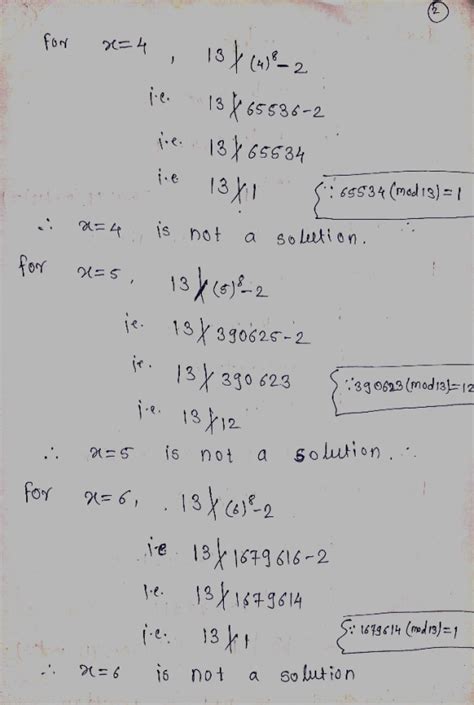 2
For x=4, 13∤(4)⁸-2
i.e. 13∤65536-2
i.e. 13∤65534
i.e 13∤1 {∵ 65534 (mod 13)=1
∴ x=4 is not a solution.
for x=5, 13∤(5)⁸-2
ie. 13∤390625-2
ie. 13∤390623 {∵390623 (mod 13)=12
i.e. 13∤12
∴ x=5 is not a solution.
for x=6, 13∤(6)⁸-2
i.e 13∤1679616-2
i.e. 13∤1679614
i.e. 13∤1 {∵ 1679614 (mod 13)=1
∴ x=6 is not a solution